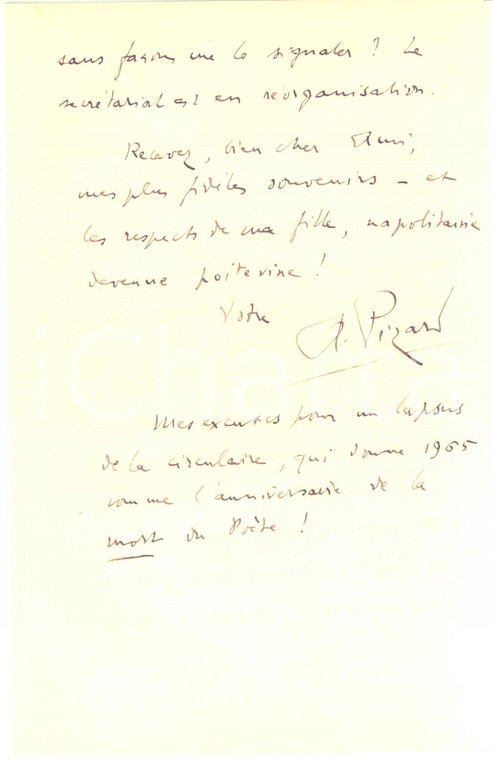 sans façons me le signaler ? Le
secrétariat est en réorganisation.
Recevez, bien cher Ami,
mes plus fidèles souvenirs - et
les respects de ma fille, napolitaine
devenue poitevine !
Votre
A. Pizard
Mes excuses pour un lapsus
de la circulaire, qui donne 1965
comme l'anniversaire de la
mort du Poète !
iCharta